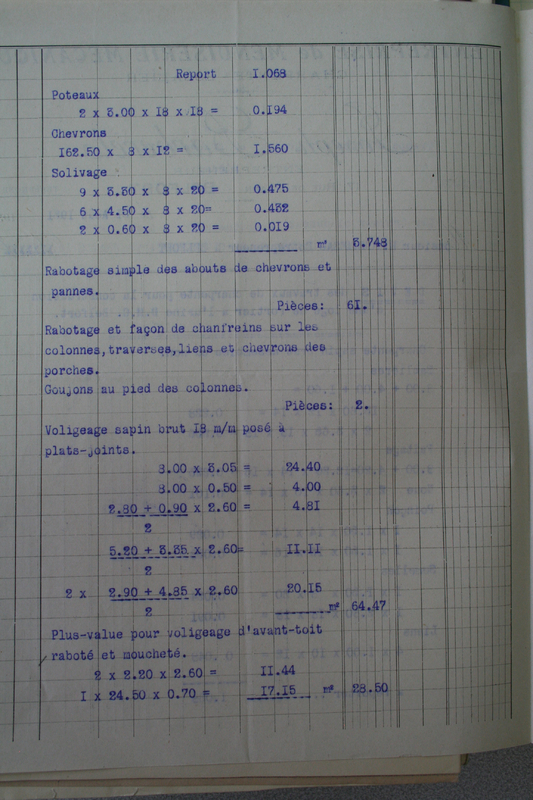 Report 1.068
Poteaux
2 x 3.00 x 18 x 18 = 0.194
Chevrons
162.50 x 8 x 12 = 1.560
Solivage
9 x 3.30 x 8 x 20 = 0.475
6 x 4.50 x 8 x 20= 0.432
2 x 0.60 x 8 x 20 = 0.019
m³ 3.748
Rabotage simple des abouts de chevrons et
pannes.
Pièces: 61.
Rabotage et façon de chanfreins sur les
colonnes,traverses,liens et chevrons des
porches.
Goujons au pied des colonnes.
Pièces: 2.
Voligeage sapin brut 18 m/m posé à
plats-joints.
8.00 x 3.05 = 24.40
8.00 x 0.50 = 4.00
2.80 + 0.90 x 2.60 = 4.81
2
5.20 + 3.35 x 2.60= 11.11
2
2 x 2.90 + 4.85 x 2.60 20.15
2
m² 64.47
Plus-value pour voligeage d'avant-toit
raboté et moucheté.
2 x 2.20 x 2.60 = 11.44
1 x 24.50 x 0.70 = 17.15 m² 28.50